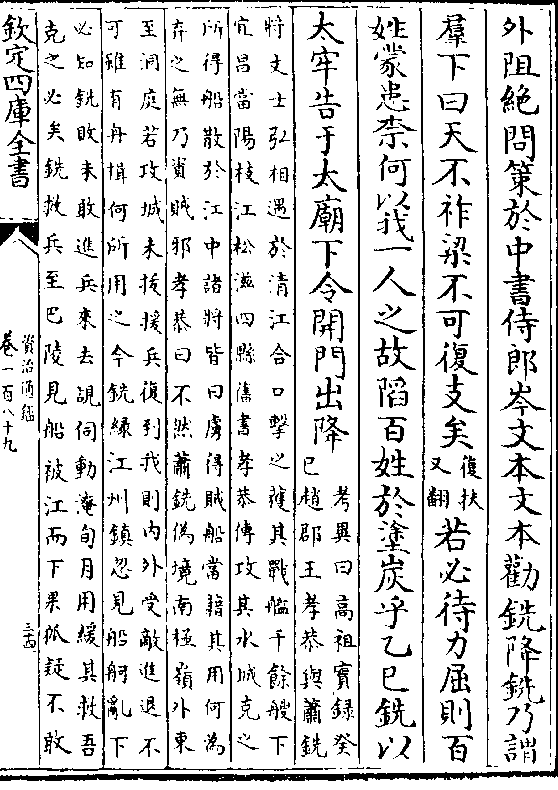 外阻絶問策於中書侍郎岑文本文本勸銑降銑乃謂
羣下曰天不祚梁不可復支矣復扶又翻若必待力屈則百
姓蒙患柰何以我一人之故陷百姓於塗炭乎乙巳銑以
太牢告于太廟下令開門出降考異曰髙祖實録癸
巳趙郡王孝恭與蕭銑
將文士弘相遇於清江合口擊之獲其戰艦千餘艘下
宜昌當陽枝江松滋四縣舊書孝恭傳攻其水城克之
所得船散於江中諸將皆曰虜得賊船當藉其用何為
弃之無乃資賊邪孝恭曰不然蕭銑偽境南極嶺外東
至洞庭若攻城未拔援兵復到我則内外受敵進退不
可雖有舟楫何所用之今銑緣江州鎮忽見船舸亂下
必知銑敗未敢進兵來去覘伺動淹旬月用緩其救吾
克之必矣銑救兵至巴陵見船被江而下果狐疑不敢
欽定四庫全書
資治通鑑
卷一百八十九
三十四